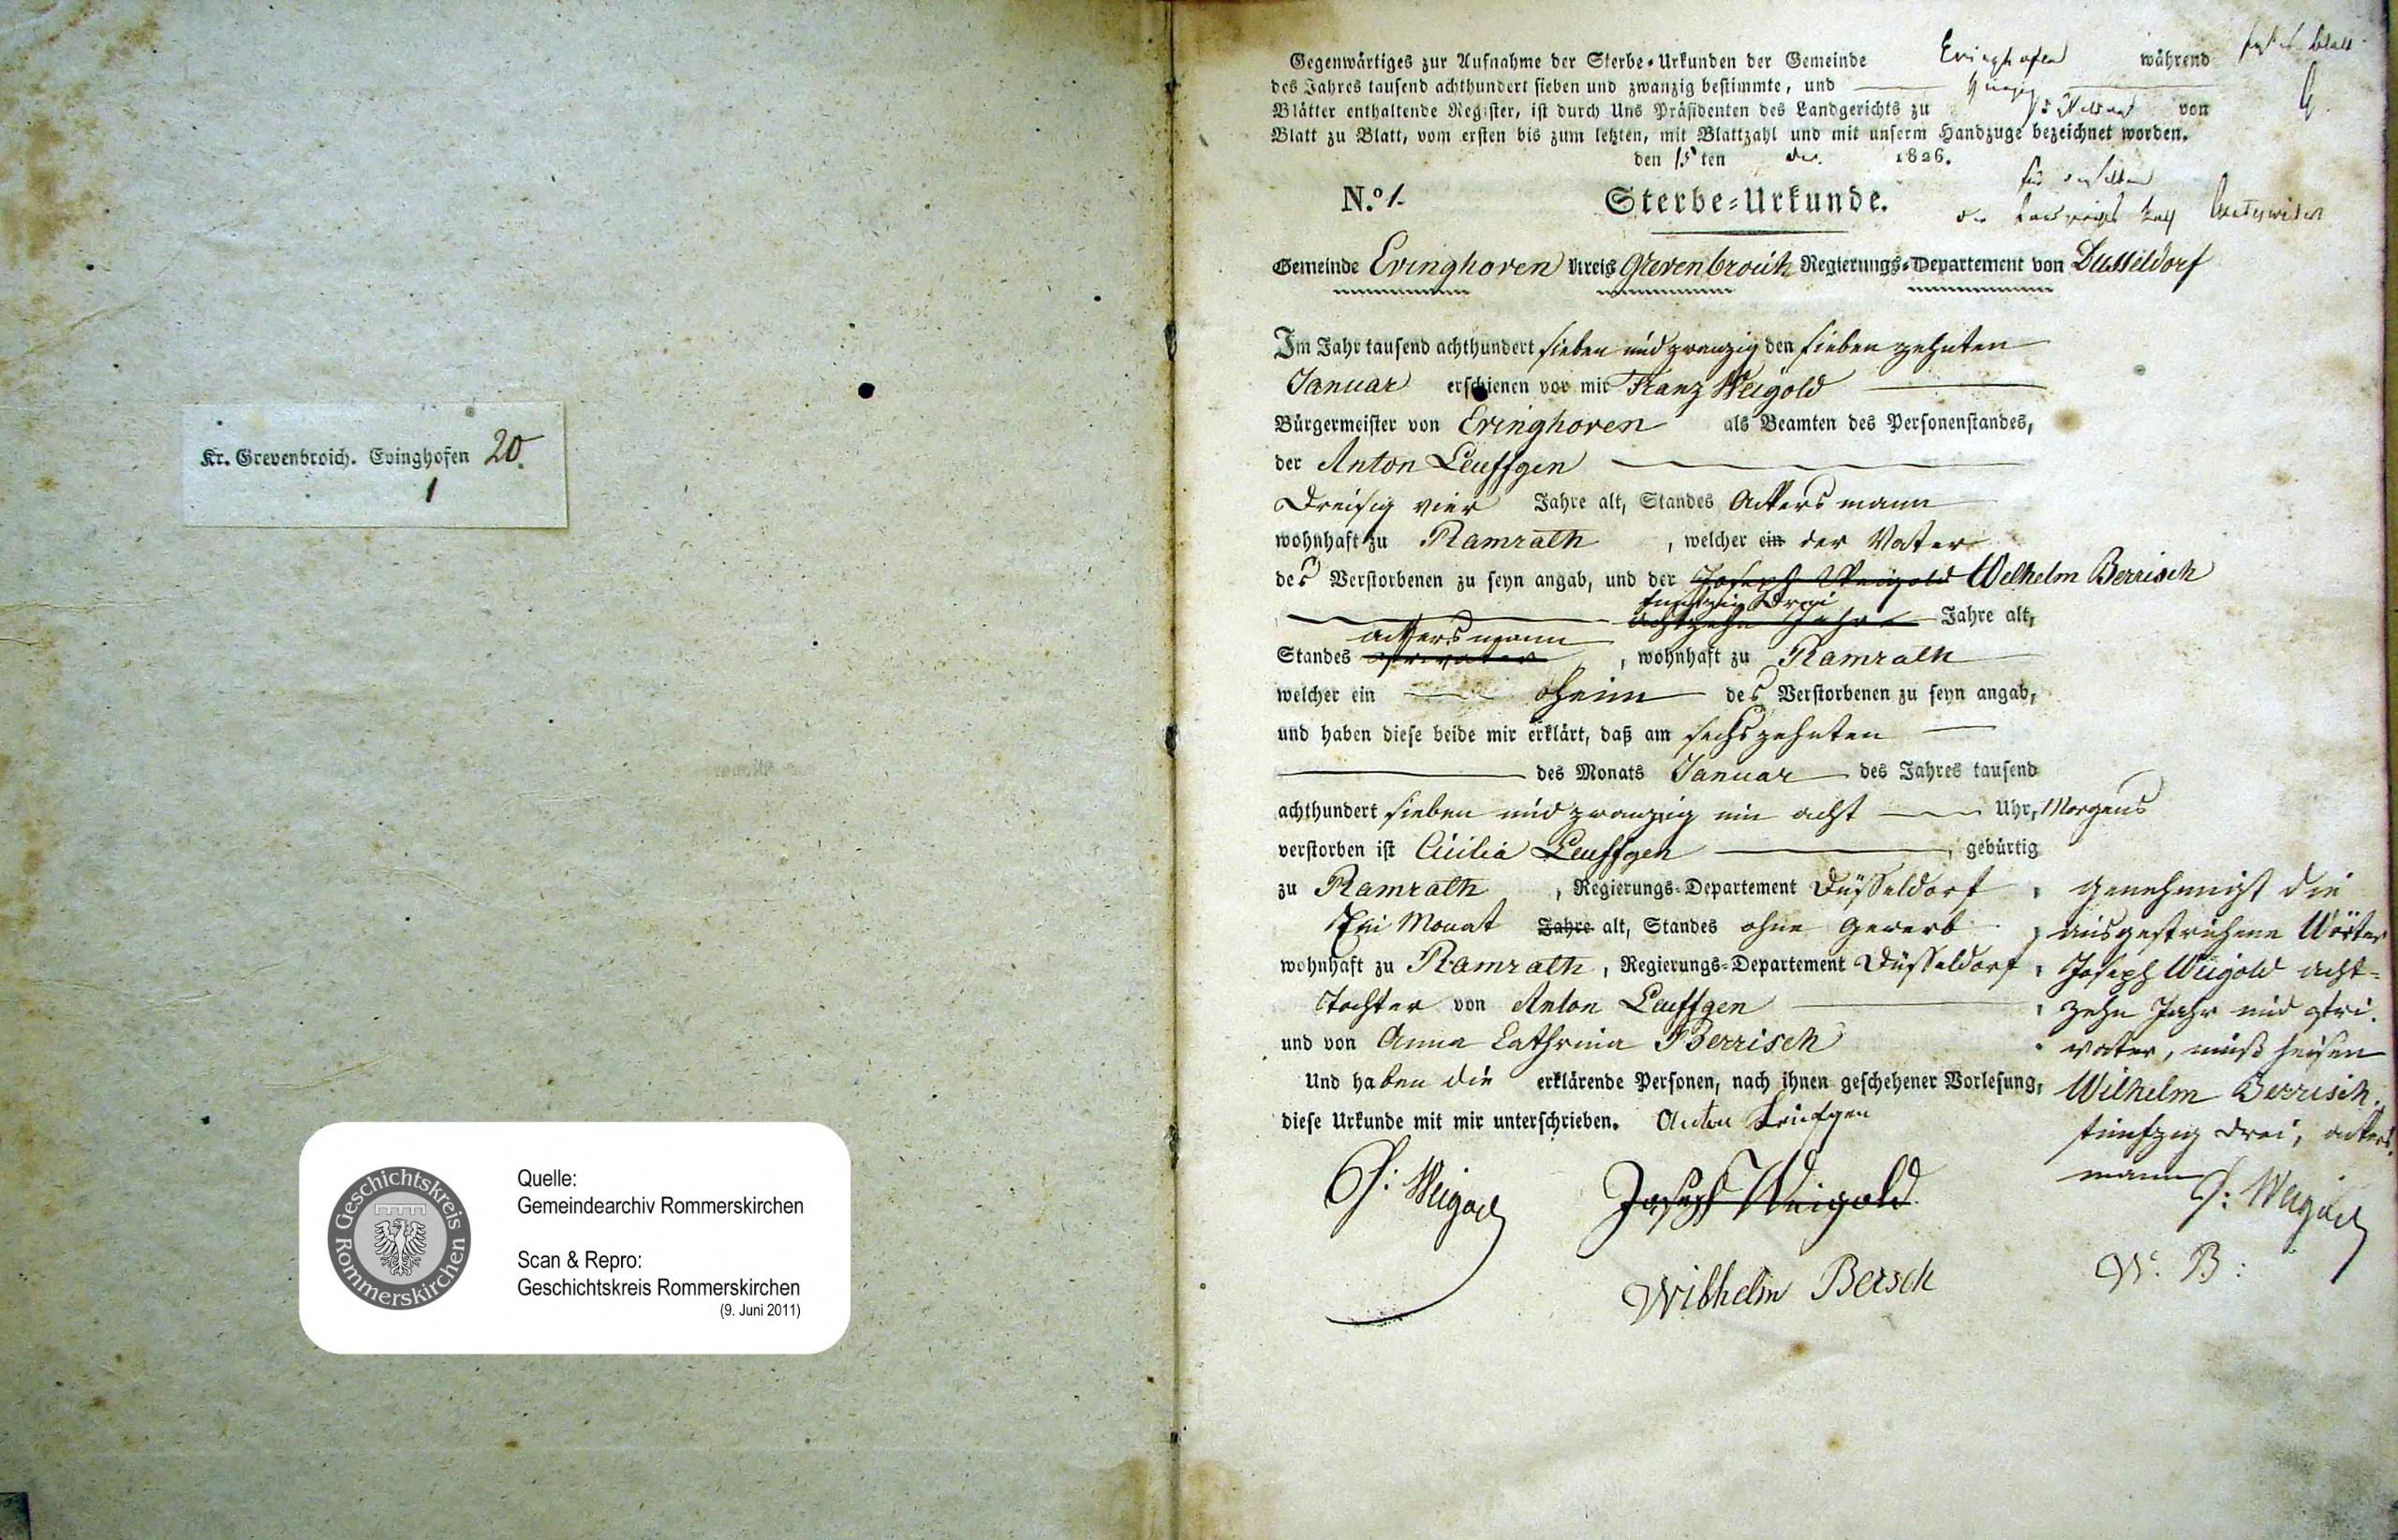 Kr. Grevenbroich. Evinghofen 20.
1
Geschichtskreis Rommerskirchen
Quelle:
Gemeindearchiv Rommerskirchen
Scan & Repro:
Geschichtskreis Rommerskirchen
(9. Juni 2011)
Gegenwärtiges zur Aufnahme der Sterbe-Urkunden der Gemeinde Evinghofen während
des Jahres tausend achthundert sieben und zwanzig bestimmte, und
Blätter enthaltende Register, ist durch Uns Präsidenten des Landgerichts zu Düsseldorf von
Blatt zu Blatt, vom ersten bis zum letzten, mit Blattzahl und mit unserm Handzuge bezeichnet worden.
den 15ten 1826.
N.º 1.
Sterbe-Urkunde.
Gemeinde Evinghoven Kreis Grevenbroich Regierungs-Departement von Dusseldorf
Im Jahr tausend achthundert sieben und zwanzig den sieben zehnten
Januar erschienen vor mir Franz Weigold
Bürgermeister von Evinghoven als Beamten des Personenstandes,
der Anton Leuffgen
Dreisig vier Jahre alt, Standes Ackersmann
wohnhaft zu Ramrath, welcher ein der Vater
des Verstorbenen zu seyn angab, und der Joseph Weigold Wilhelm Berrisch
fünfzig Drei
achtzehn Jahr Jahre alt,
ackersmann
Standes , wohnhaft zu Ramrath
welcher ein oheim des Verstorbenen zu seyn angab,
und haben diese beide mir erklärt, daß am sechszehnten
des Monats Januar des Jahres tausend
achthundert sieben und zwanzig um acht Uhr, Morgens
verstorben ist Cicilia Leuffgen, gebürtig
zu Ramrath, Regierungs-Departement Düsseldorf
Monat Jahre alt, Standes ohne Gewerb
wohnhaft zu Ramrath, Regierungs-Departement Düsseldorf
Tochter von Anton Leuffgen
und von Anna Cathrina Berrisch
Und haben die erklärende Personen, nach ihnen geschehener Vorlesung,
diese Urkunde mit mir unterschrieben. Anton Leufgen
F: Weigold
Joseph Weigold
Wilhelm Bersch
Genehmigt die
ausgestrichene Wörter
Joseph Weigold acht-
zehn Jahr und pri-
vater, muß heisen
Wilhelm Berrisch,
fünfzig drei, ackers
mann F: Weigold
W. B: